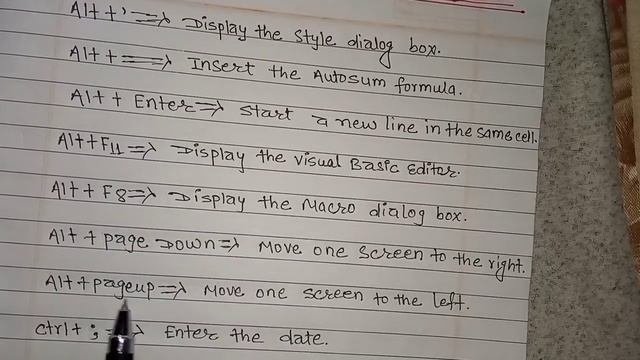 Alt+' => Display the style dialog box.
Alt+= => Insert the Autosum formula.
Alt + Enter => Start a new line in the same cell.
Alt+F11 => Display the visual Basic Editor.
Alt + F8 => Display the Macro dialog box.
Alt + page Down => Move one screen to the right.
Alt+pageup => Move one screen to the left.
ctrl+ ; => Enter the date.